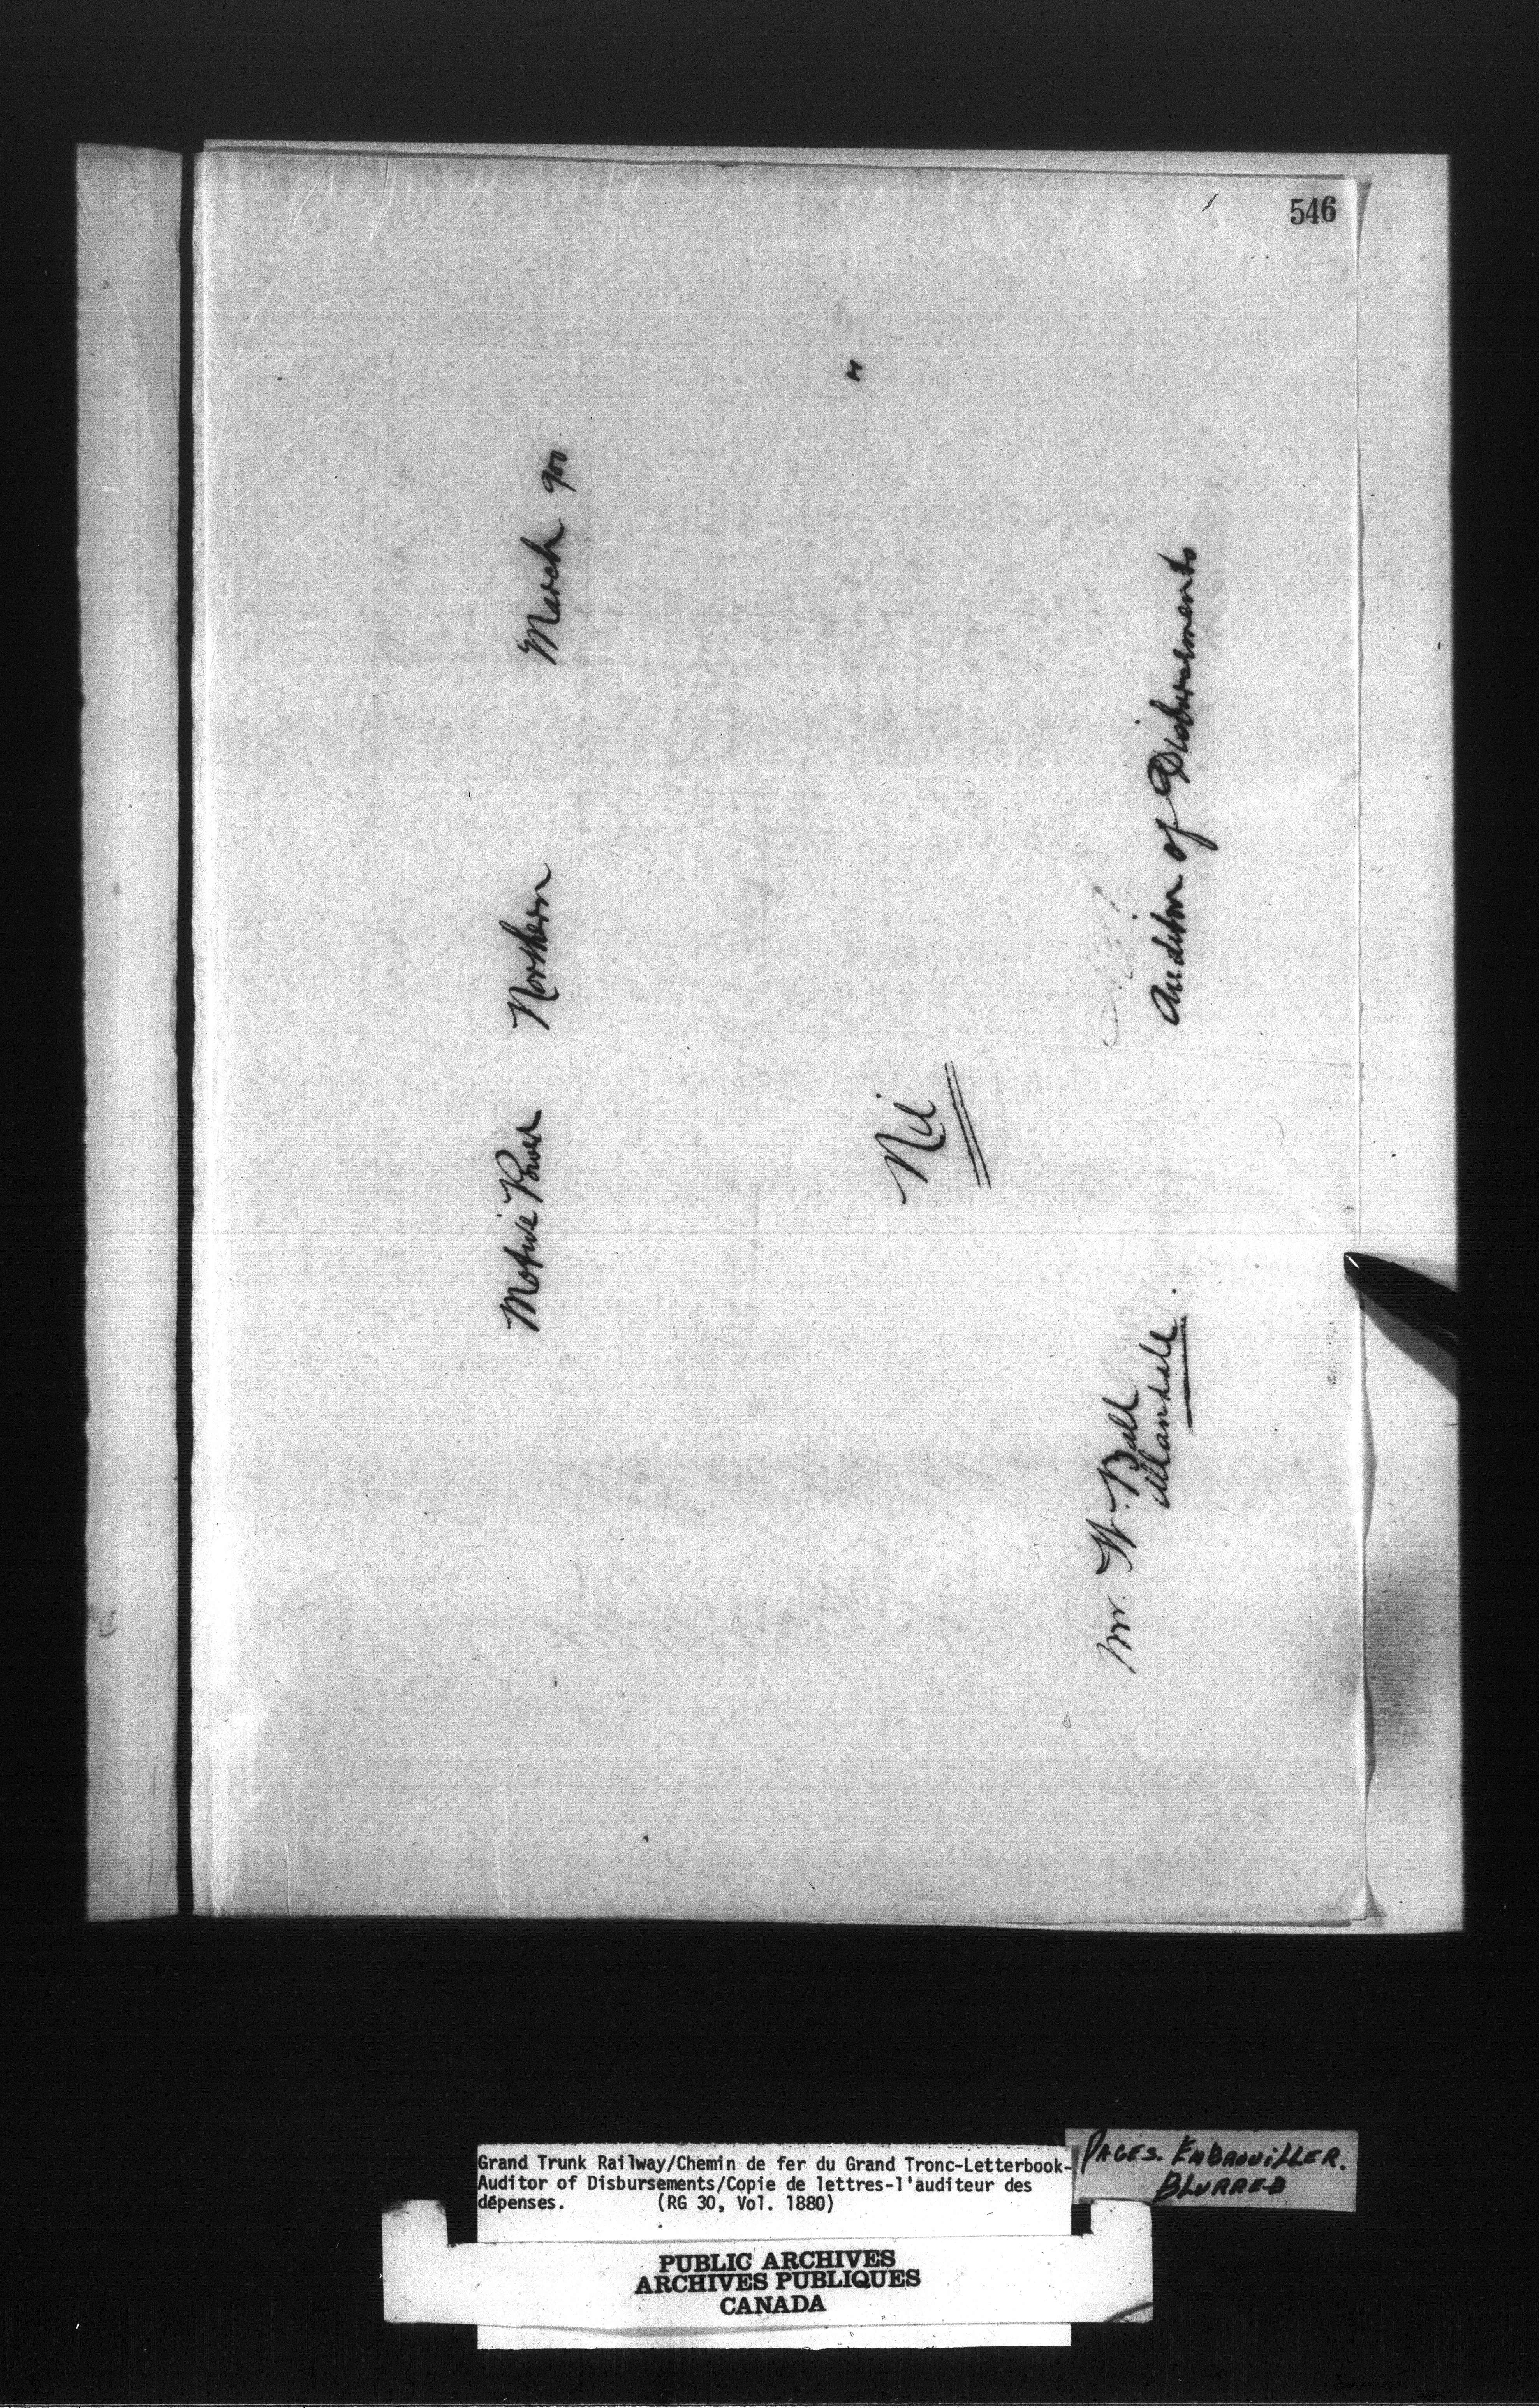 546
Motive Power Northern March 900
"
Nil
Auditor of Disbursements
Mr. W. Ball
Allandale.
Grand Trunk Railway/Chemin de fer du Grand Tronc-Letterbook-
Auditor of Disbursements/Copie de lettres-l'auditeur des
dépenses. (RG 30, Vol. 1880)
PAGES. EMBROUILLER.
BLURRED
PUBLIC ARCHIVES
ARCHIVES PUBLIQUES
CANADA